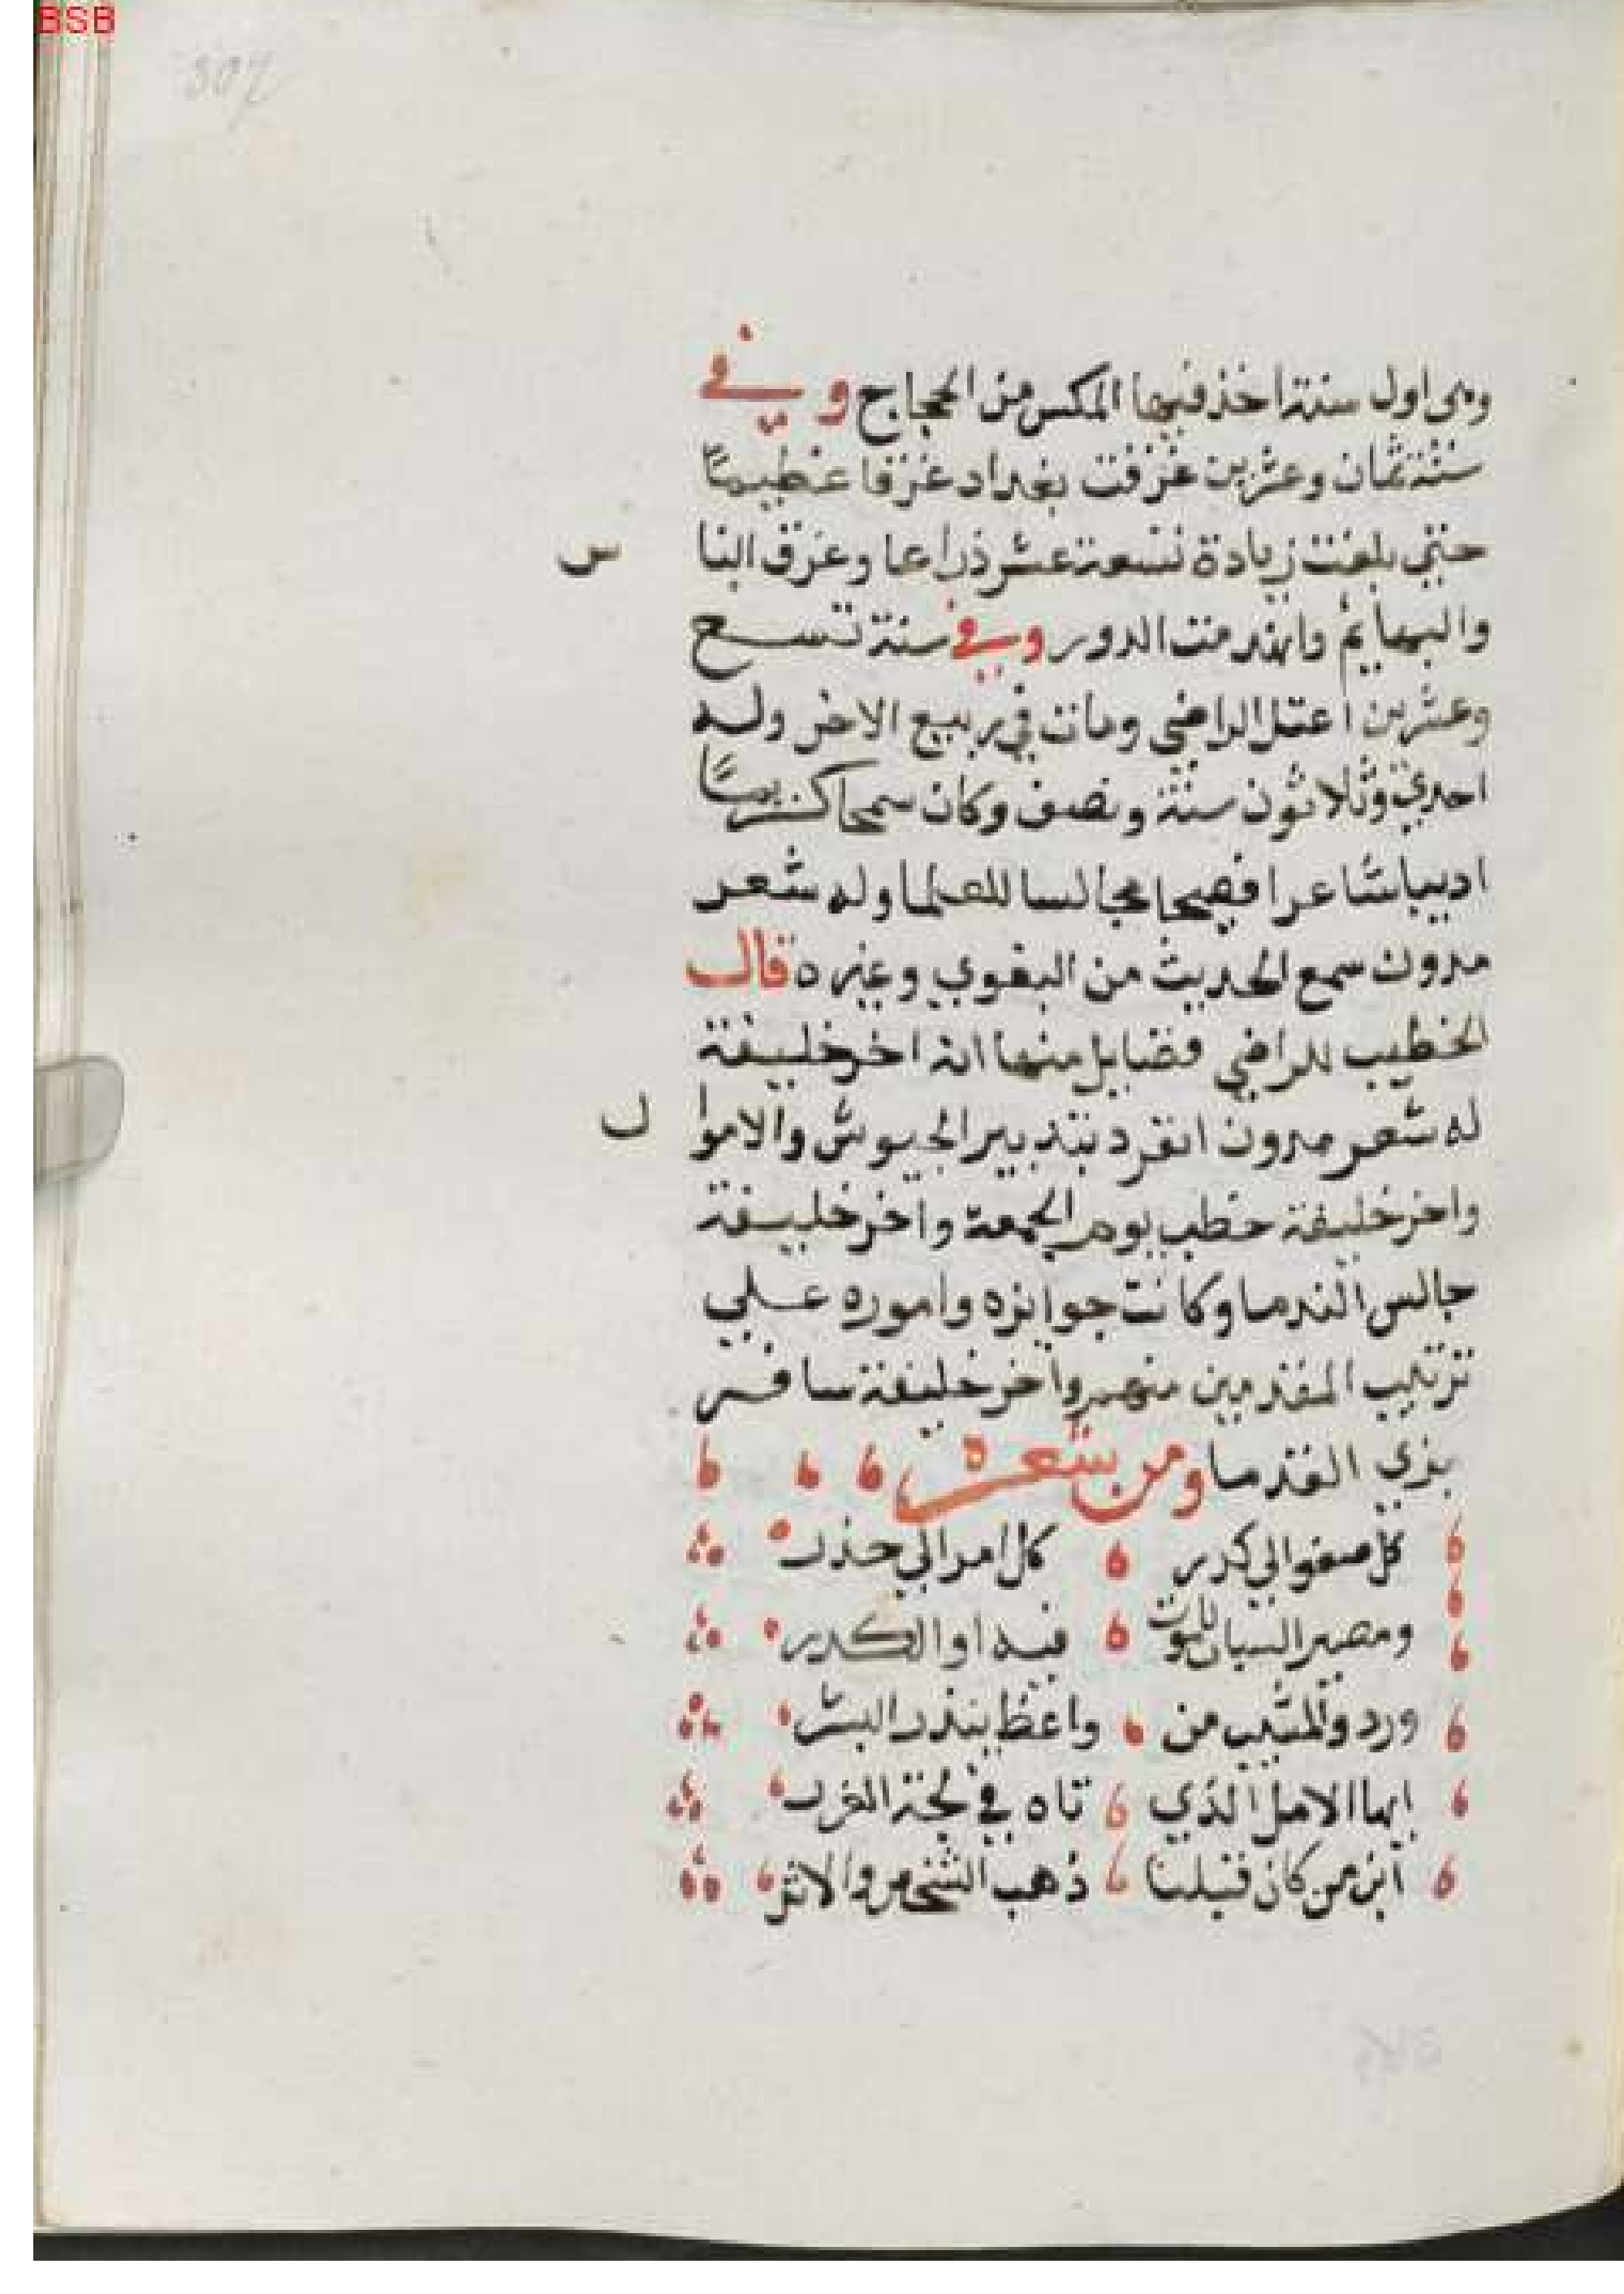 BSB
307
وهى اول سنة اخذ فيها المكس من الحجاج وفي
سنة ثمان وعشرين غرقت بغداد غرقا عظيما
حتي بلغت زيادة تسعة عشر ذراعا وغرق النا س
والبهايم وانهدمت الدور وفي سنة تسع
وعشرين اعتل الراضي ومات في ربيع الاخر وله
احدي وثلاثون سنة ونصف وكان سمحا كريما
اديبا شاعرا فصيحا مجالسا للعلما وله شعر
مدون سمع الحديث من البغوي وغيره قال
الخطيب للراضي فضايل منها انه اخر خليفة
له شعر مدون انفرد بتدبير الجيوش والاموا ل
واخر خليفة خطب يوم الجمعة واخر خليفة
جالس الندما وكانت جوايزه واموره علي
ترتيب المقدمين منهم واخر خليفة سافر
بزي القدما ومن شعره
كل صفو الي كدر كل امر الي حذر
ومصير الشباب للموت فيه او الكدر
ورد والمشيب من واعظ ينذر البشر
ايها الامل الذي تاه في لجة الغرر
اين من كان قبلنا ذهب الشخص والاثر